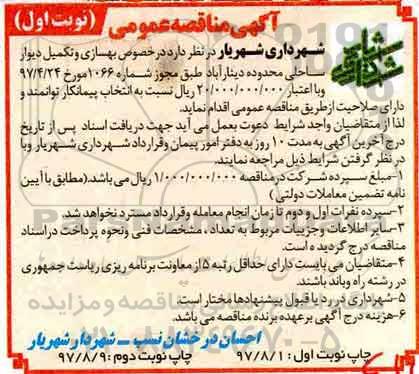 آگهی مناقصه عمومی
(نوبت اول)
شهرداری شهریار در نظر دارد در خصوص بهسازی و تکمیل دیوار
ساحلی محدوده دینارآباد طبق مجوز شماره ۱۰۶۶ مورخ ۹۷/۴/۲۴
و با اعتبار ۲۰/۰۰۰/۰۰۰/۰۰۰ ریال نسبت به انتخاب پیمانکار توانمند و
دارای صلاحیت از طریق مناقصه عمومی اقدام نماید.
لذا از متقاضیان واجد شرایط دعوت بعمل می آید جهت دریافت اسناد پس از تاریخ
درج آخرین آگهی به مدت ۱۰ روز به دفتر امور پیمان و قرارداد شهرداری شهریار و با
در نظر گرفتن شرایط ذیل مراجعه نمایند.
۱-مبلغ سپرده شرکت در مناقصه ۱/۰۰۰/۰۰۰/۰۰۰ ریال می باشد.(مطابق با آیین
نامه تضمین معاملات دولتی)
۲-سپرده نفرات اول و دوم تا زمان انجام معامله و قرارداد مسترد نخواهد شد.
۳-سایر اطلاعات و جزییات مربوط به تعداد ، مشخصات فنی و نحوه پرداخت در اسناد
مناقصه درج گردیده است.
۴-متقاضیان می بایست دارای حداقل رتبه ۵ از معاونت برنامه ریزی ریاست جمهوری
در رشته راه و باند باشند.
۵-شهرداری در رد یا قبول پیشنهادها مختار است.
۶-هزینه درج آگهی بر عهده برنده مناقصه می باشد.
احسان درخشان نسب – شهردار شهریار
چاپ نوبت اول : ۹۷/۸/۱ چاپ نوبت دوم : ۹۷/۸/۹